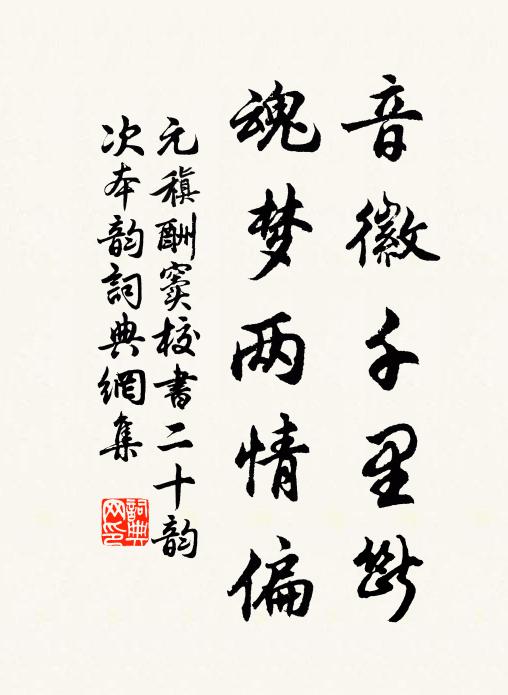 音徽千里斷
魂梦两情偏
元稹酬窦校書二十韵
次本韵詞典網集
詞典
网印